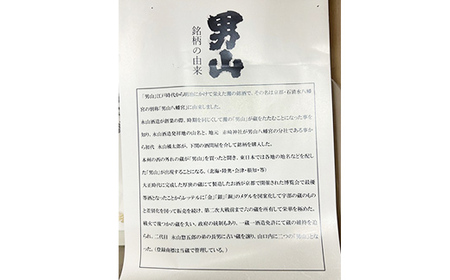 男山
銘柄の由来
「男山」江戸時代から明治にかけて栄えた灘の銘酒で、その名は京都・石清水八幡
宮の別称「男山八幡宮」に由来しました。
永山酒造が創業の際、時期を同じくして灘の「男山」が蔵をたたむことになった事を
知り、永山酒造発祥地の山名と、地元
男山八幡宮の分社である事か
ら初代 永山橘太郎が、下関の酒問屋を介して銘柄を購入した。
本州の西の外れの蔵が「男山」を買ったと聞き、東日本では各地の地名などを配し
た「男山」が出現することになる。(北海・陸奥・会津・
等)
大正時代に完成した厚狭の蔵にて製造したお酒が京都で開催された博覧会で最優
等酒となったことからレッテルに「金」「銀」「銅」のメダルを図案化して宇部の蔵のもの
と差別化を図って販売を続け、第二次大戦前まで六の蔵を所有して栄華を極めた。
戦火で幾つかの蔵を失い、政府の統制もあり、一蔵一酒造免許にて蔵の維持を迫
られ、二代目 永山惣五郎の弟の長男に古い蔵を譲り、山口内に二つの「男山」となっ
た。(登録商標は当蔵で管理している。)